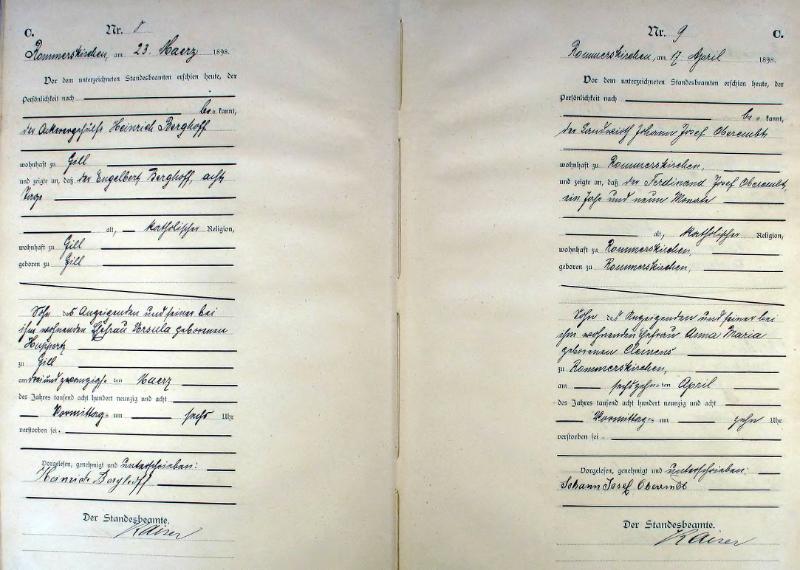 C.
Nr. 8
Rommerskirchen, am 23. Maerz 1898.
Vor dem unterzeichneten Standesbeamten erschien heute, der
Persönlichkeit nach
be kannt,
der Ackergehülfe Heinrich Berghoff
wohnhaft zu Gill
und zeigte an, daß der Engelbert Berghoff, acht
Tage
alt, katholischer Religion,
wohnhaft zu Gill
geboren zu Gill
Sohn des Anzeigenden und seiner bei
ihm wohnenden Ehefrau Ursula geborenen
Huppertz
zu Gill
am dreiundzwanzigsten Maerz
des Jahres tausend acht hundert neunzig und acht
Vormittags um sechs Uhr
verstorben sei.
Vorgelesen, genehmigt und unterschrieben:
Heinrich Berghoff
Der Standesbeamte.
Kaiser
Nr. 9
C.
Rommerskirchen, am 17 April 1898.
Vor dem unterzeichneten Standesbeamten erschien heute, der
Persönlichkeit nach
be kannt,
der Landwirth Johann Josef Oberembt
wohnhaft zu Rommerskirchen,
und zeigte an, daß der Ferdinand Josef Oberembt,
ein Jahr und neun Monate
alt, katholischer Religion,
wohnhaft zu Rommerskirchen,
geboren zu Rommerskirchen,
Sohn des Anzeigenden und seiner bei
ihm wohnenden Ehefrau Anna Maria
geborenen Clemens
zu Rommerskirchen,
am sechszehnten April
des Jahres tausend acht hundert neunzig und acht
Vormittags um zehn Uhr
verstorben sei
Vorgelesen, genehmigt und unterschrieben:
Johann Josef Oberembt
Der Standesbeamte.
Kaiser